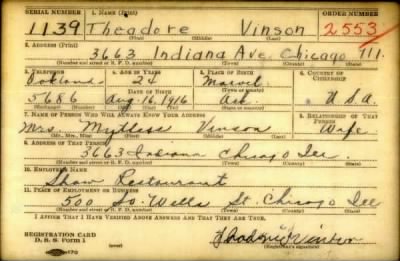 SERIAL NUMBER 1. NAME (Print) ORDER NUMBER
1139 Theadore Vinson 2553
(First) (Middle) (Last)
2. ADDRESS (Print)
3663 Indiana Ave Chicago Ill.
(Number and street) (Town) (County) (State)
3. TELEPHONE 4. AGE IN YEARS 5. PLACE OF BIRTH 6. COUNTRY OF CITIZENSHIP
Oakland 24 Marvel
DATE OF BIRTH
5686 Aug. 16, 1916 Ark. U.S.A.
7. NAME OF PERSON WHO WILL ALWAYS KNOW YOUR ADDRESS 8. RELATIONSHIP OF THAT PERSON
Mrs. Vinson Wife
(Mr., Mrs., Miss) (First) (Middle) (Last)
9. ADDRESS OF THAT PERSON
3663 Indiana Chicago Ill.
(Number and street) (Town) (County) (State)
10. EMPLOYER'S NAME
Shaw Restaurant
11. PLACE OF EMPLOYMENT OR BUSINESS
500 So. Wells St. Chicago Ill
(Number and street) (Town) (County) (State)
I AFFIRM THAT I HAVE VERIFIED ABOVE ANSWERS AND THAT THEY ARE TRUE.
REGISTRATION CARD
D. S. S. Form 1
Theadore Vinson
(Registrant's signature)